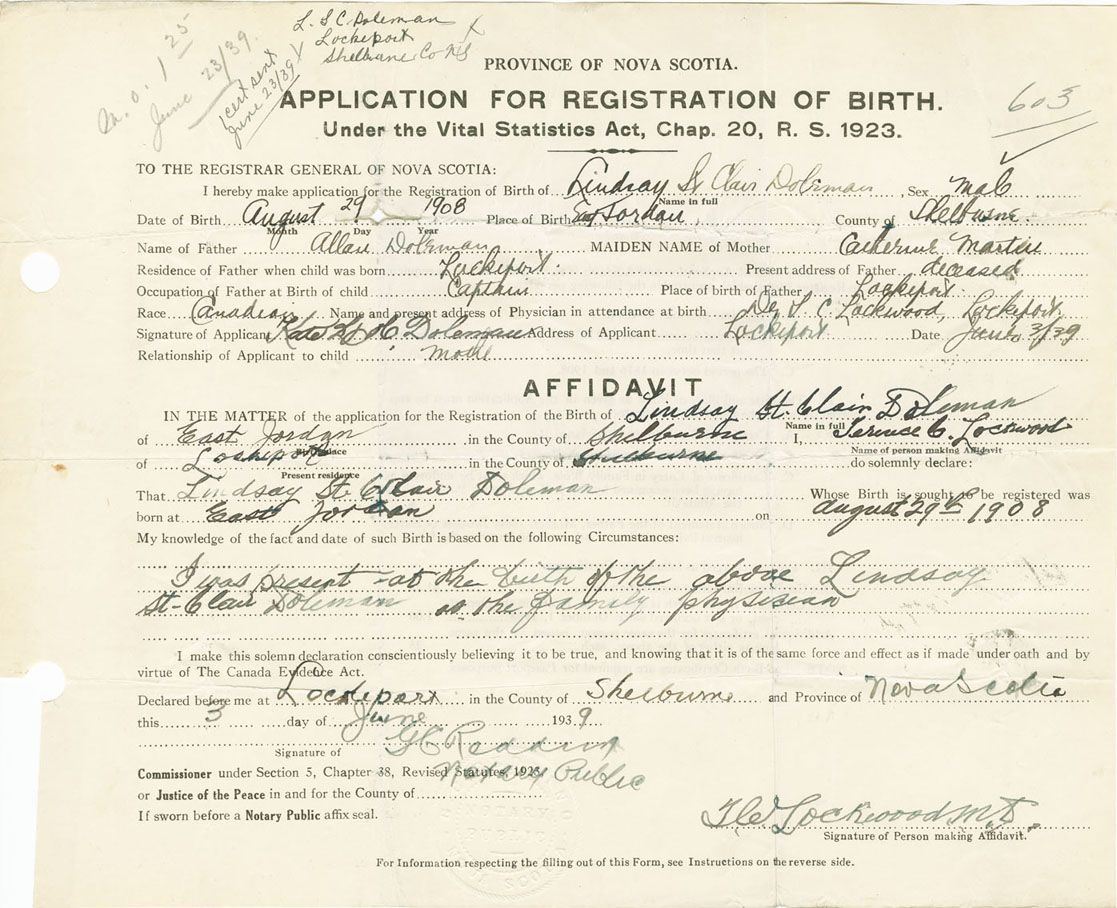 L. S C. Doleman
Lockeport
Shelburne Co NS
M. O. 1 25
June 23/39.
1 cert sent
June 23/39
603
PROVINCE OF NOVA SCOTIA.
APPLICATION FOR REGISTRATION OF BIRTH.
Under the Vital Statistics Act, Chap. 20, R. S. 1923.
TO THE REGISTRAR GENERAL OF NOVA SCOTIA:
I hereby make application for the Registration of Birth of Lindsay St Clair Doleman Sex male
Name in full
Date of Birth August 29 1908 Place of Birth E. Jordan County of Shelburne
Month Day Year
Name of Father Allan Doleman MAIDEN NAME of Mother Catherine Martin
Residence of Father when child was born Lockeport Present address of Father deceased
Occupation of Father at Birth of child Captain Place of birth of Father Lockeport
Race Canadian Name and present address of Physician in attendance at birth C Lockwood, Lockeport
Signature of Applicant Doleman Address of Applicant Lockeport Date June 3/39
Relationship of Applicant to child
AFFIDAVIT
IN THE MATTER of the application for the Registration of the Birth of Lindsay St. Clair Doleman
Name in full
of East Jordan in the County of Shelburne I, Terence C. Lockwood
Birthplace Name of person making Affidavit
of Lockeport in the County of Shelburne do solemnly declare:
Present residence
That Lindsay St Clair Doleman Whose Birth is sought to be registered was
born at East Jordan on August 29th 1908
My knowledge of the fact and date of such Birth is based on the following Circumstances:
I was present at the birth of the above Lindsay
St-Clair Doleman as the family physician
I make this solemn declaration conscientiously believing it to be true, and knowing that it is of the same force and effect as if made under oath and by
virtue of The Canada Evidence Act.
Declared before me at Lockeport in the County of Shelburne and Province of Nova Scotia
this 3 day of June 1939
Signature of
Commissioner under Section 5, Chapter 38, Revised Statutes, 1923. Notary Public
or Justice of the Peace in and for the County of
If sworn before a Notary Public affix seal.
Lockwood M.D.
Signature of Person making Affidavit.
For Information respecting the filling out of this Form, see Instructions on the reverse side.